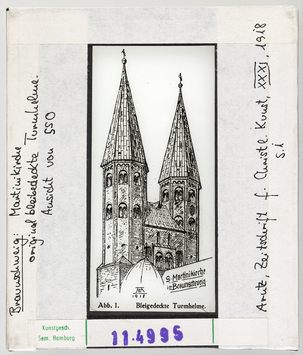 Braunschweig: Martinikirche
original bleibedeckte Turmhelme.
Ansicht von SSO
S. Martinikirche
in Braunschweig
1918
Abb. 1. Bleigedeckte Turmhelme.
Zeitschrift f. Christl. Kunst, XXXI, 1918
S. 1
Kunstgesch.
Sem. Hamburg
11.4995